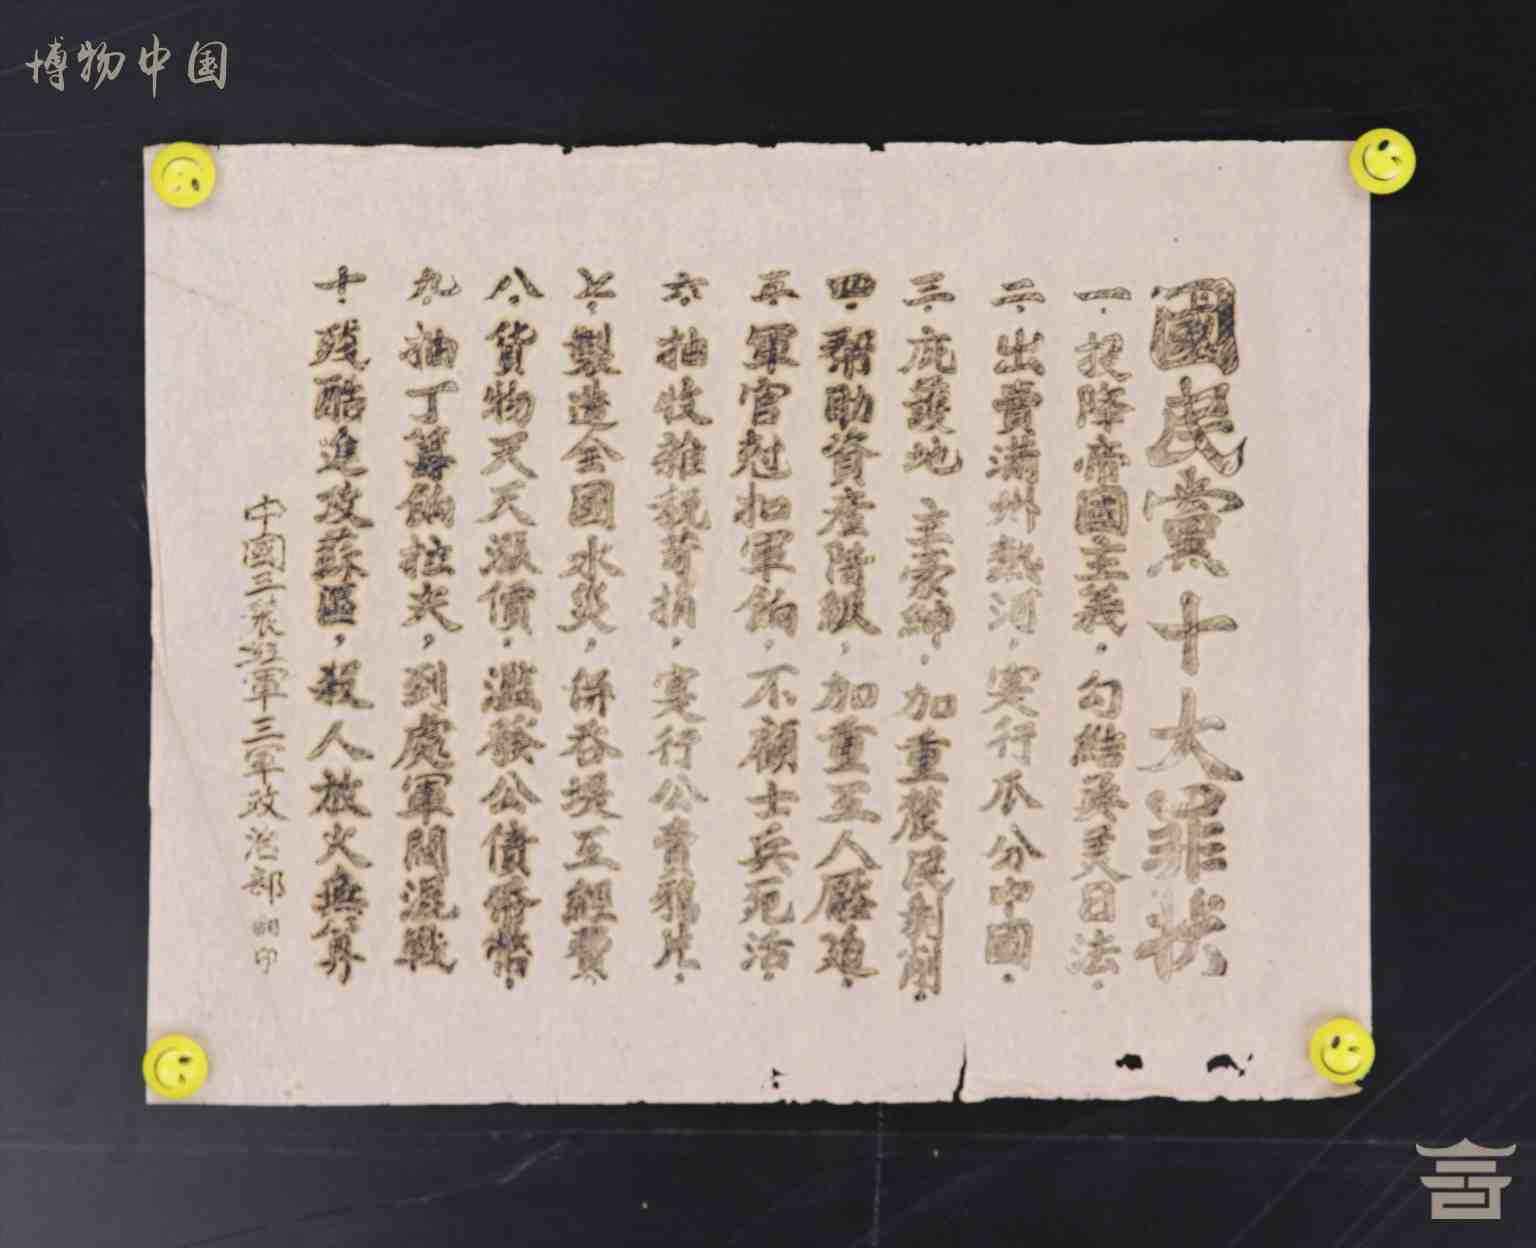 博物中国
國民黨十大罪狀
一．投降帝國主義，勾結英美日法．
二．出賣滿州熱河，实行瓜分中國．
三．庇護地主豪紳．加重農民剝削．
四．帮助資產階級，加重工人壓迫．
五．軍官尅扣軍餉，不顧士兵死活．
六．抽收雜税苛捐，实行公賣鴉片．
七．製造全國水災，併吞堤工經費
八．貨物天天漲價．濫發公債𢁉幣．
九．抽丁籌餉拉夫，到處軍閥混戰
十．残酷進攻蘇區，殺人放火無算
中國工農红軍三軍政治部翻印